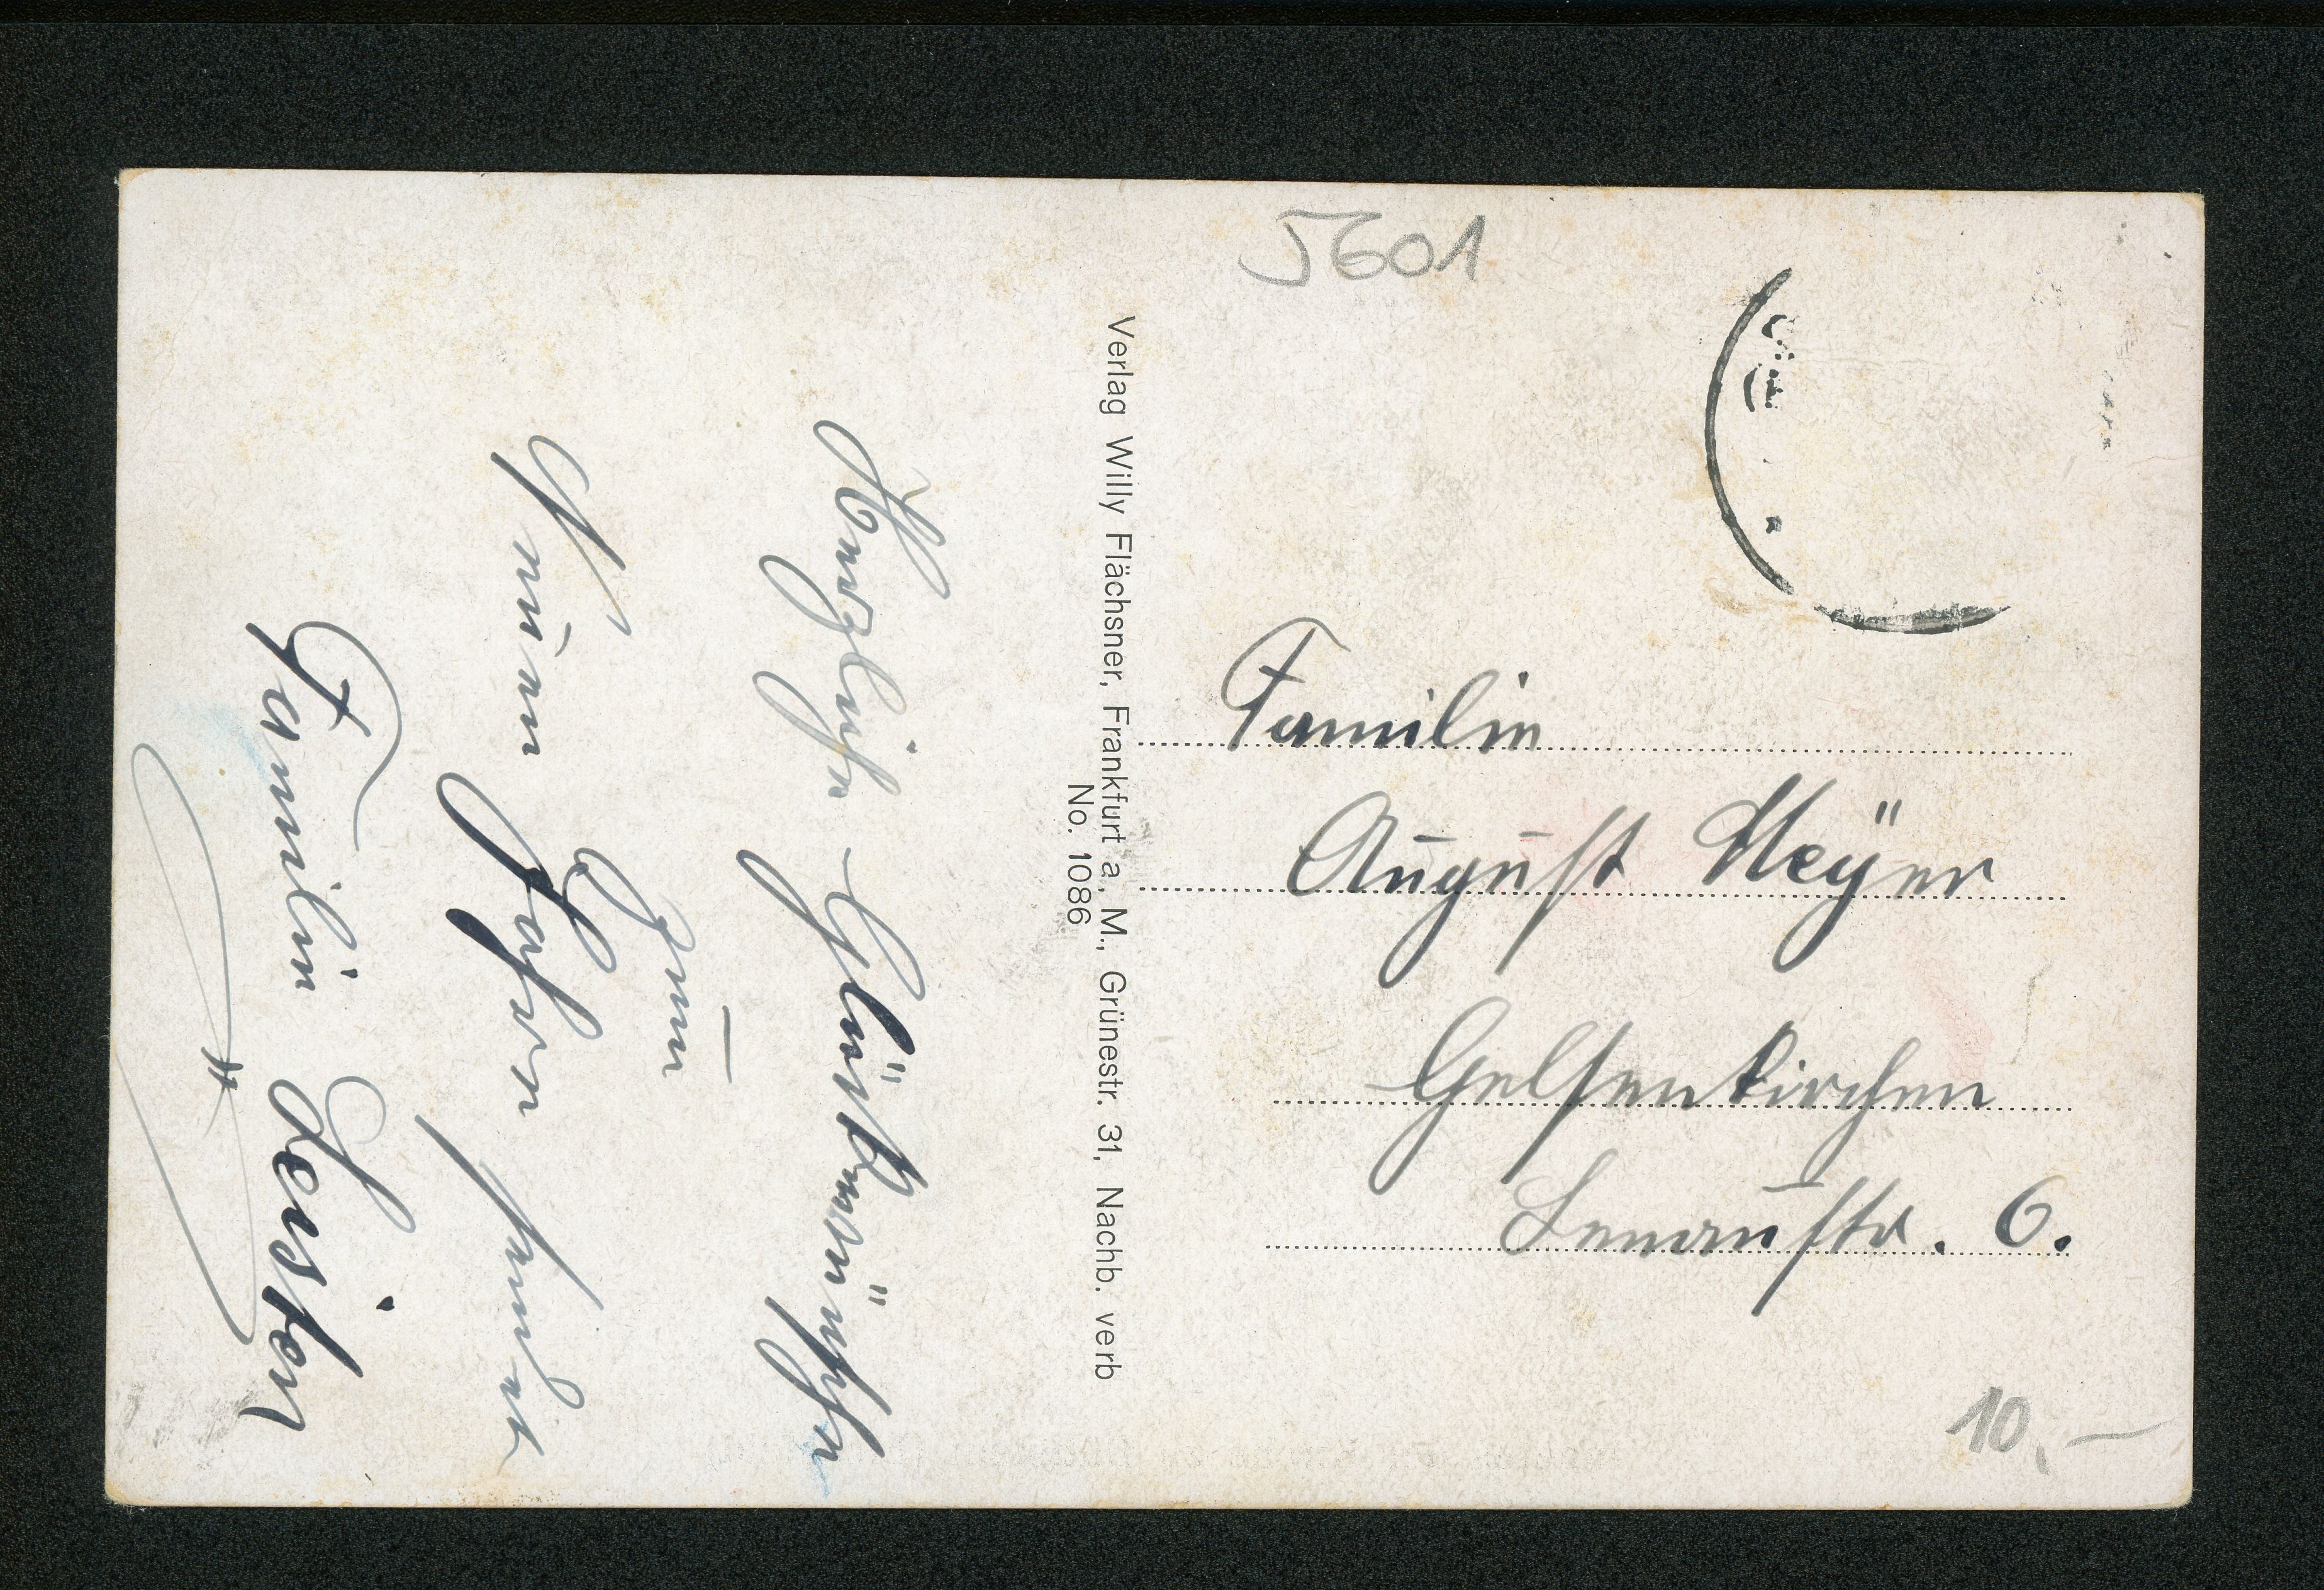 5601
Familie
August Meyer
Gelsenkirchen
Lenaustr. 6.
10,—
Verlag Willy Flächsner, Frankfurt a. M., Grünestr. 31, Nachb. verb
No. 1086
Herzliche Glückwünsche
zum
Neuen Jahre sendet
Familie